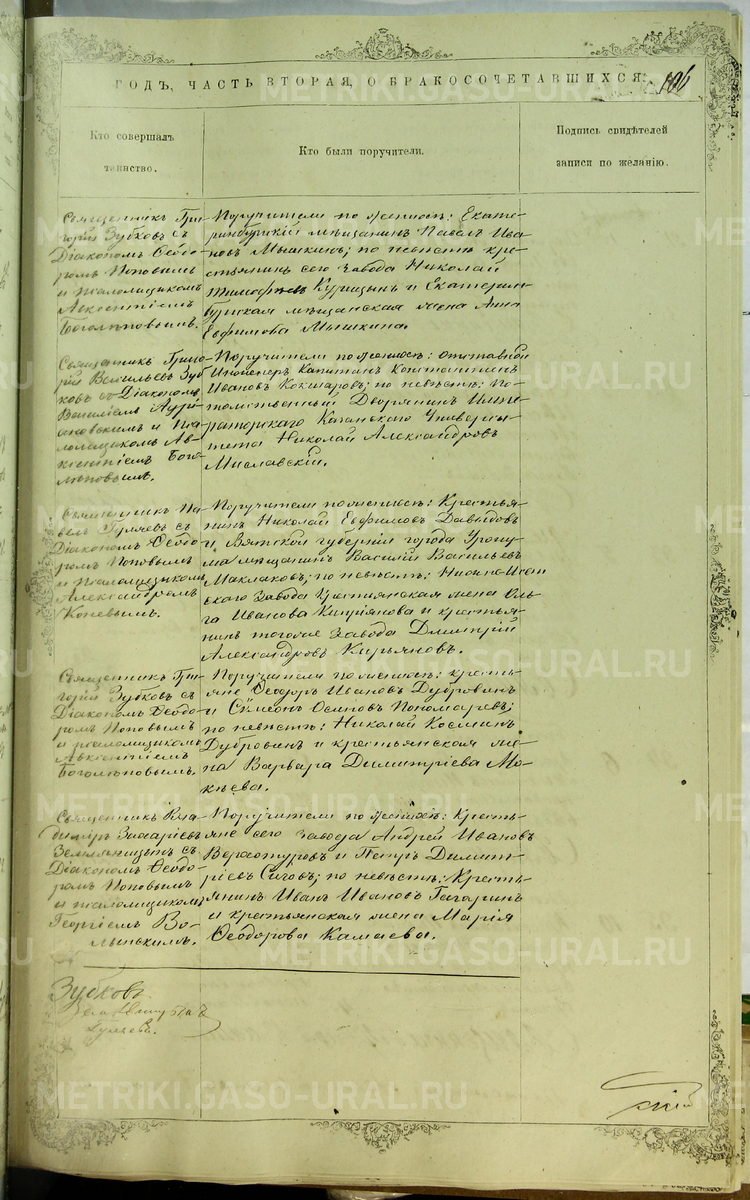 ГОДЪ, ЧАСТЬ ВТОРАЯ, О БРАКОСОЧЕТАВШИХСЯ.
106
Кто совершалъ
таинство.
Кто были поручители.
Подпись свидѣтелей
записи по желанію.
Священникъ Гри-
горій Зубковъ съ
Діакономъ Ѳеодо-
ромъ Поповымъ
и псаломщикомъ
Авксентіемъ
Боголѣповымъ.
Поручители по женихѣ: Екате-
ринбургскій мѣщанинъ Павелъ Ива-
новъ Мышкинъ; по невѣстѣ кре-
стьянинъ сего завода Николай
Курицынъ и Екатерин-
бургская мѣщанская жена Анна
Евфимова Мышкина.
Священникъ Григо-
рій Васильевъ Зуб-
ковъ съ Діакономъ
Василіемъ
и пса-
ломщикомъ Ав-
ксентіемъ Бого-
лѣповымъ.
Поручители по женихѣ: отставной
Инженеръ Капитанъ Константинъ
Ивановъ Кокшаровъ; по невѣстѣ: По-
томственный Дворянинъ Импе-
раторскаго Казанскаго Универси-
тета Николай Александровъ
Миславскій.
Священникъ Па-
велъ Гуляевъ съ
Діакономъ Ѳеодо-
ромъ Поповымъ
и псаломщикомъ
Александромъ
Коневымъ.
Поручители по женихѣ: Крестья-
нинъ Николай Евфимовъ Давыдовъ
и Вятской губерніи города Уржу-
ма мѣщанинъ Василій Васильевъ
Маклаковъ; по невѣстѣ: Нижне-Исет-
скаго Завода Крестьянская жена Оль-
га Иванова Кипріянова и крестья-
нинъ тогоже Завода Дмитрій
Александровъ Кирьяновъ.
Священникъ Гри-
горій Зубковъ съ
Діакономъ Ѳеодо-
ромъ Поповымъ
и псаломщикомъ
Авксентіемъ
Боголѣповымъ.
Поручители по женихѣ: кресть-
яне Ѳеодоръ Ивановъ Дубровинъ
и Сѵмеонъ Осиповъ Пономаревъ;
по невѣстѣ: Николай Косминъ
Дубровинъ и крестьянская же-
на Варвара Димитріева Мо-
кѣева.
Священникъ Вла-
диміръ Захаріевъ
Земляницынъ съ
Діакономъ Ѳеодо-
ромъ Поповымъ
и псаломщикомъ
Георгіемъ
Поручители по женихѣ: Кресть-
яне сего завода Андрей Ивановъ
Верхотуровъ и Петръ Димит-
ріевъ Сысовъ; по невѣстѣ: Кресть-
янинъ Иванъ Ивановъ Гагаринъ
и крестьянская жена Марія
Ѳеодорова Камаева.
Зубковъ
METRIKI.GASO-URAL.RU